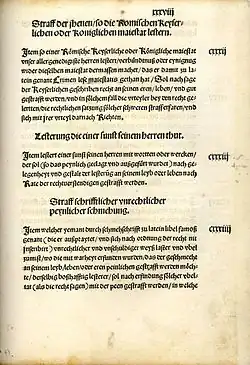 xxxviii
Straff der jhenen / so die Römischen Keyser
lichen oder Königlichen maiestat lestern.
Item so einer Römische Keyserliche oder Königliche maiestat
vnser allergnedigste herren / verbündtnuß oder eynigung
wider dieselben maiestat dermassen machet / das er damit zu la
tein genant Crimen lese maiestatis gethan hat / Sol nach sage
der Keyserlichen geschriben recht an seinen eren / leben / vnd gut
gestrafft werden /
vnd sich mit jrer vrteyl darnach Richten.
cxxxij
Lesterung die einer sunst seinem herren thut.
Item lestert einer sunst seinen herren mit worten oder wercken /
der sol (so das peynlich geklagt vnd außgefürt wurdet) nach ge
legenheyt vnd gestalt der lesterung an seinem leyb oder leben nach
Rate der rechtuerstendigen gestrafft werden.
cxxxiij
Straff schrifftlicher vnrechtlicher
peynlicher schmehung.
Item welcher yemant durch schmehschrifft zu latein libel famoß
genant (die er außpraytet / vnd sich nach ordnung der recht nit
vnrechtlicher vnd vnschuldiger weyß laster vnd übel
zumist / wo die mit warheyt erfunden wurden / das der geschmecht
an seinem leyb / leben / oder eren peinlichen gestrafft werden möch
te / derselbig boßhafftig lesterer / sol nach erfindung solcher übel
tat (als die recht sagen) mit der peen gestrafft werden / in welche
cxxxiiij